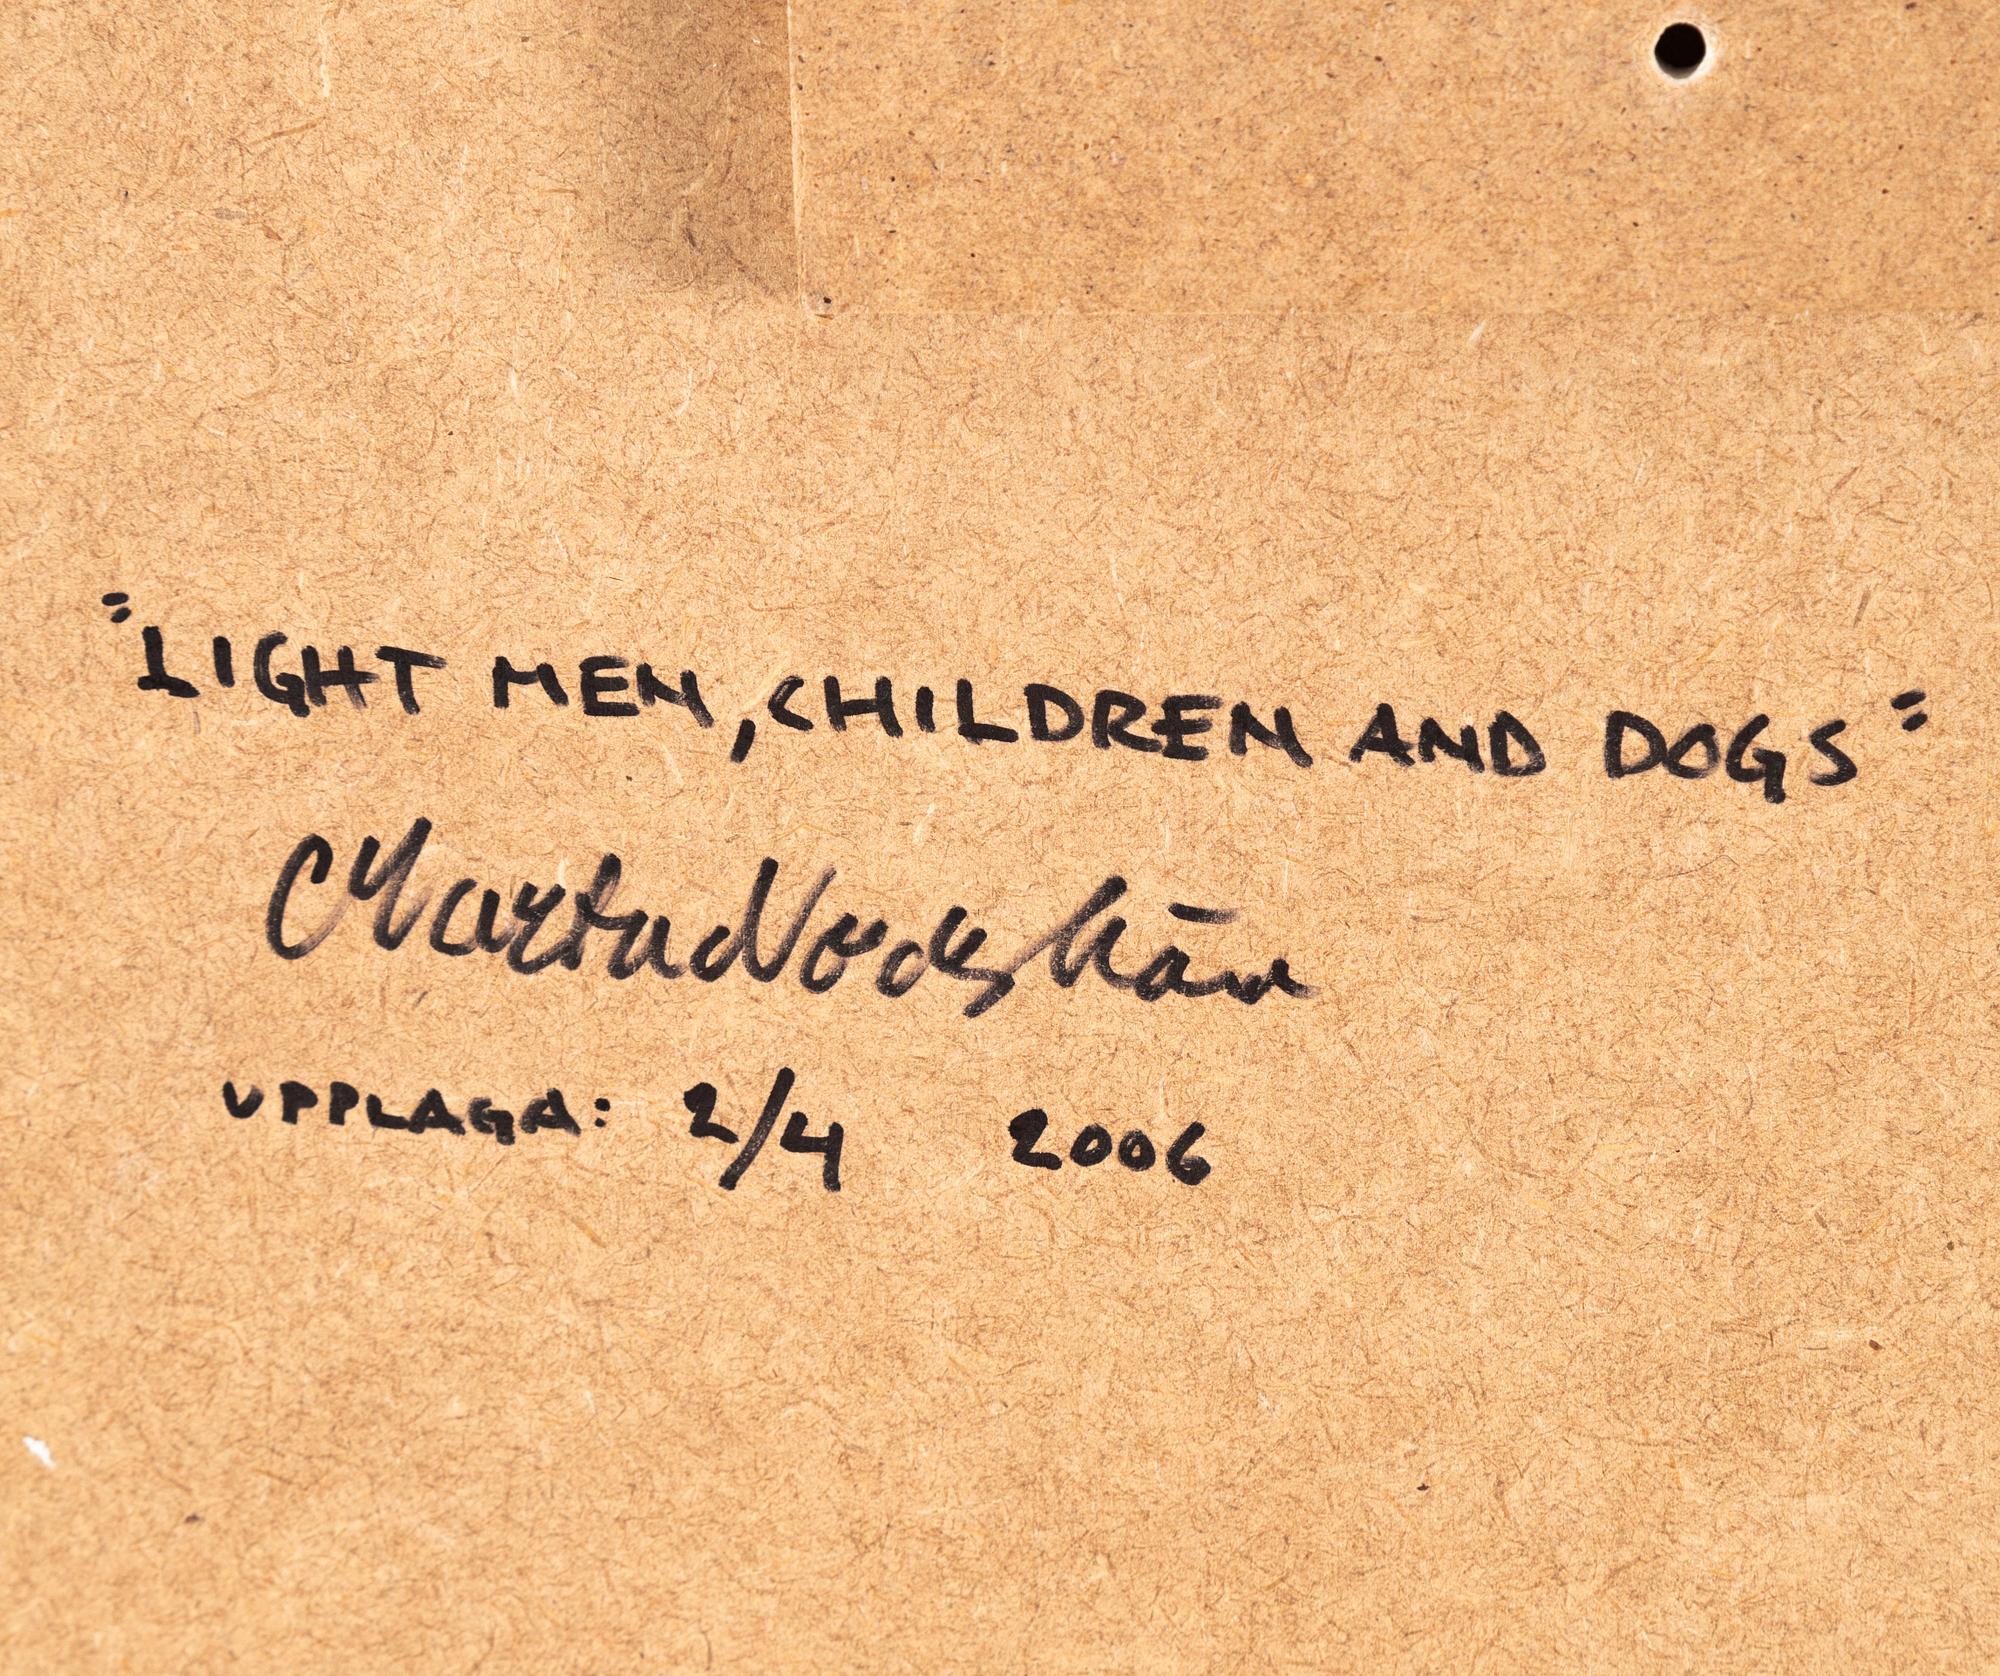 "LIGHT MEN, CHILDREN AND DOGS"
Marta Nordskär
UPPLAGA: 2/4 2006